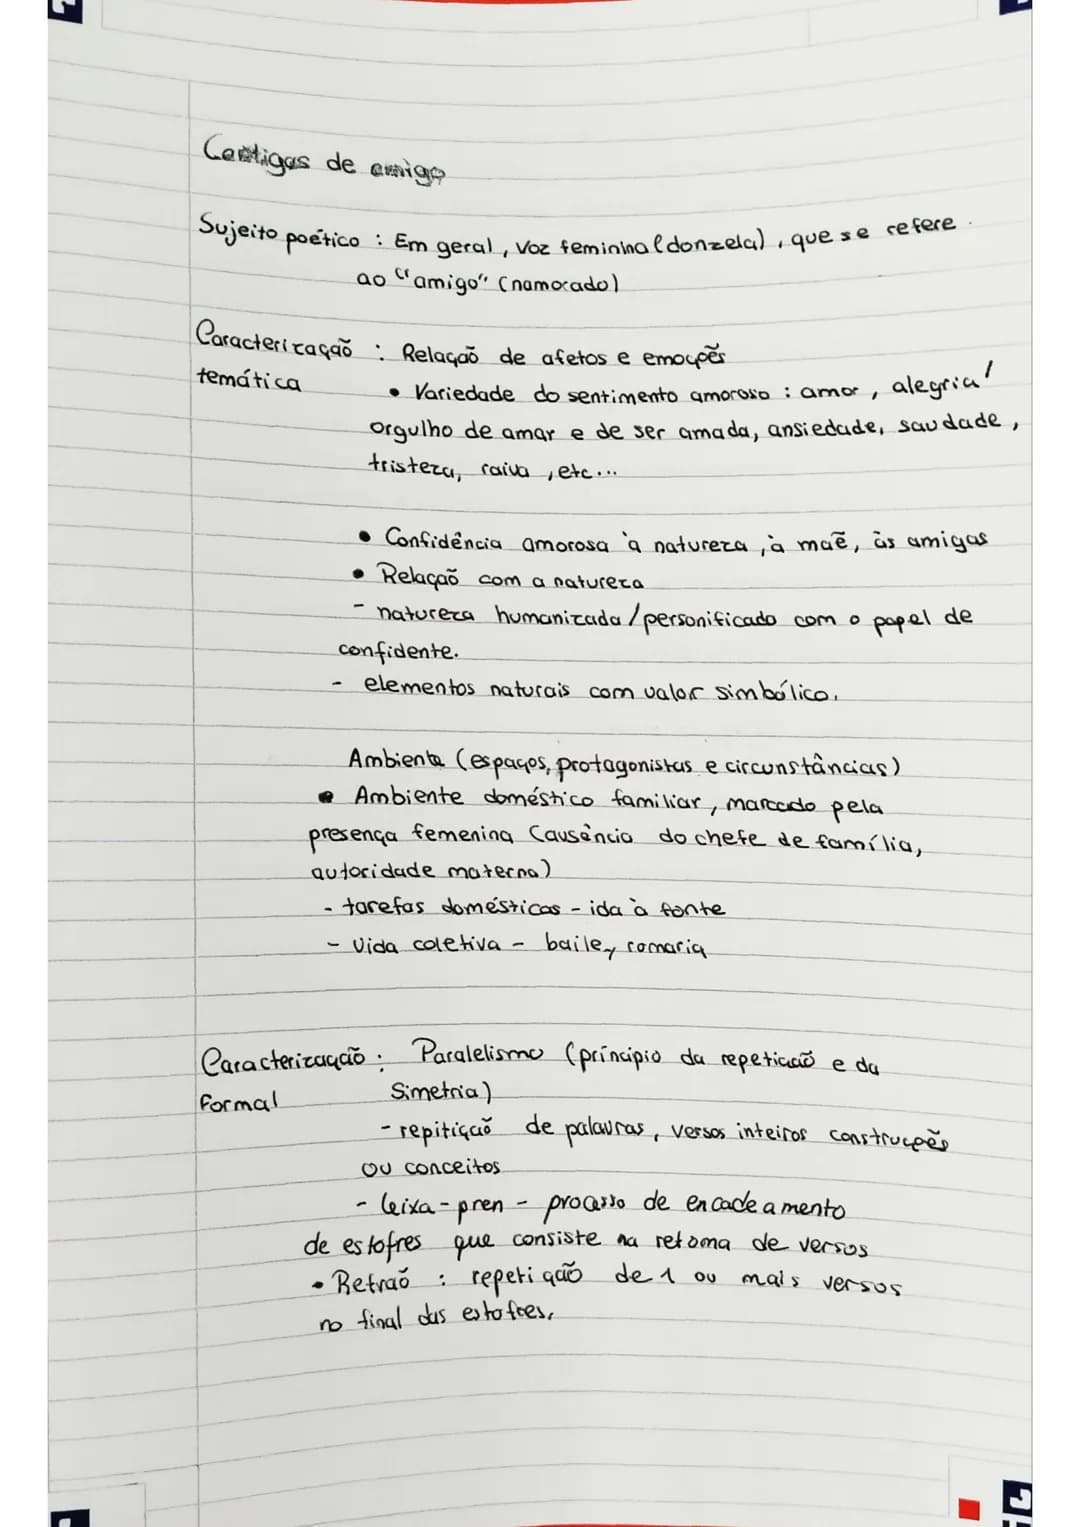 Cantigas de amigo
Sujeito poético : Em geral, voz feminina (donzela), que se refere
ao "amigo" (namorado)
Caracterização : Relação de afetos e emoções
temática
• Variedade do sentimento amoroso : amor, alegria/
orgulho de amar e de ser amada, ansiedade, saudade,
tristeza, raiva, etc...
• Confidência amorosa à natureza, à maẽ, às amigas
• Relação com a natureza
- natureza humanizada/personificado com o papel de
confidente.
- elementos naturais com valor simbólico.
Ambiente (espaços, protagonistas e circunstâncias)
• Ambiente doméstico familiar, marcado pela
presença femenina (ausência do chefe de família,
autoridade materna)
- tarefas domésticas - ida à fonte
- Vida coletiva - baile, romaria
Caracterização : Paralelismo (príncipio da repetição e da
formal
Simetria)
- repitição de palavras, versos inteiros construções
ou conceitos
- leixa-pren - processo de encadeamento
de estofres que consiste na retoma de versos
• Refraõ : repetição de 1 ou mais versos
no final das estofres.